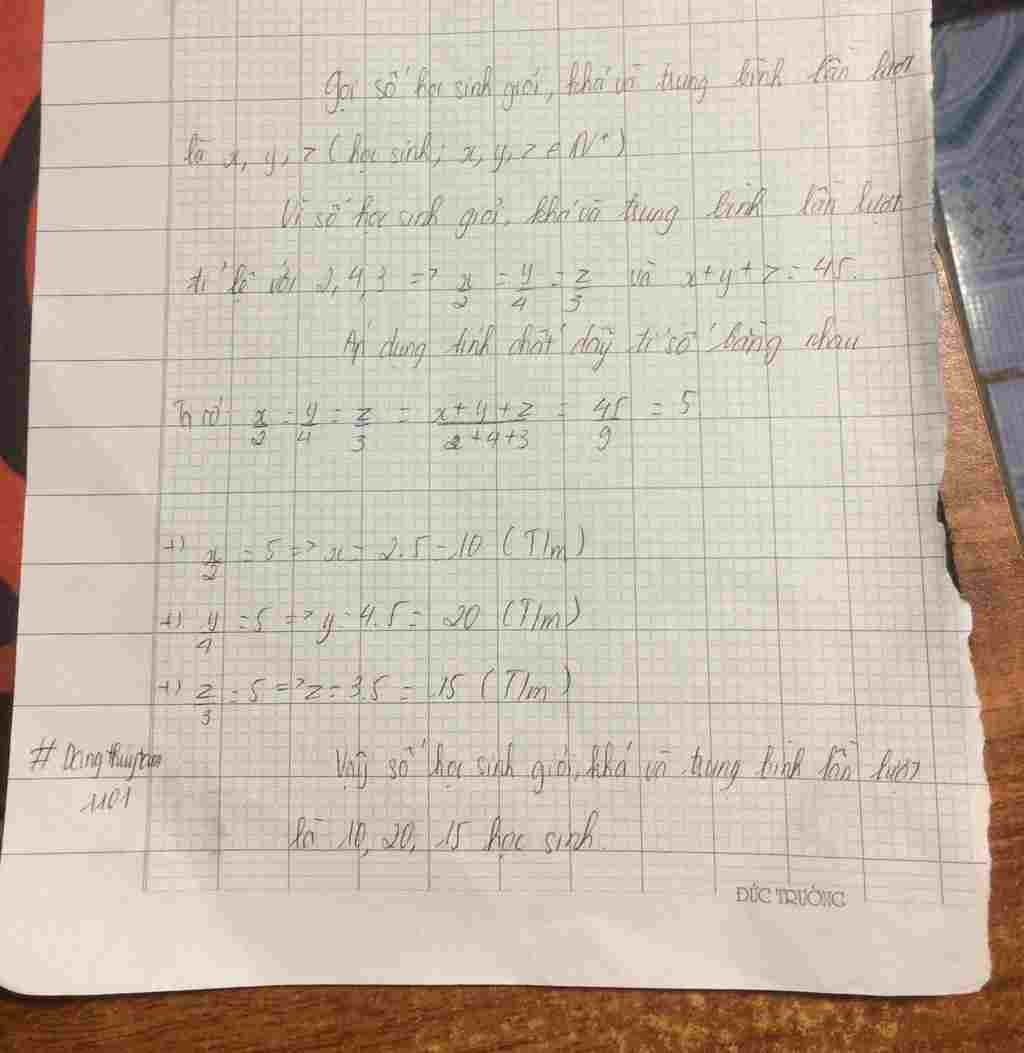 Gọi số học sinh giỏi, khá và trung bình lần lượt
là x, y, z (học sinh; x, y, z ∈ N*)
Vì số học sinh giỏi, khá và trung bình lần lượt
tỉ lệ với 2, 4, 3 => x/2 = y/4 = z/3 và x+y+z = 45.
Áp dụng tính chất dãy tỉ số bằng nhau
Ta có: x/2 = y/4 = z/3 = x+y+z/2+4+3 = 45/9 = 5
+) x/2 = 5 => x = 2.5 = 10 (T/m)
+) y/4 = 5 => y = 4.5 = 20 (T/m)
+) z/3 = 5 => z = 3.5 = 15 (T/m)
Vậy số học sinh giỏi, khá và trung bình lần lượt
là 10, 20, 15 học sinh.
# Dangthuytam
1101
ĐỨC TRƯỜNG